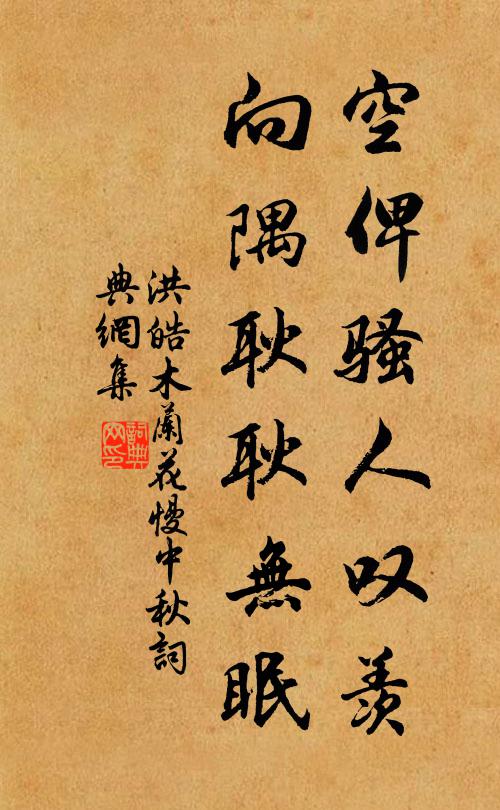 空俾騷人叹羨
向隅耿耿無眠
洪皓木蘭花慢中秋詞
典網集
詞典
网印